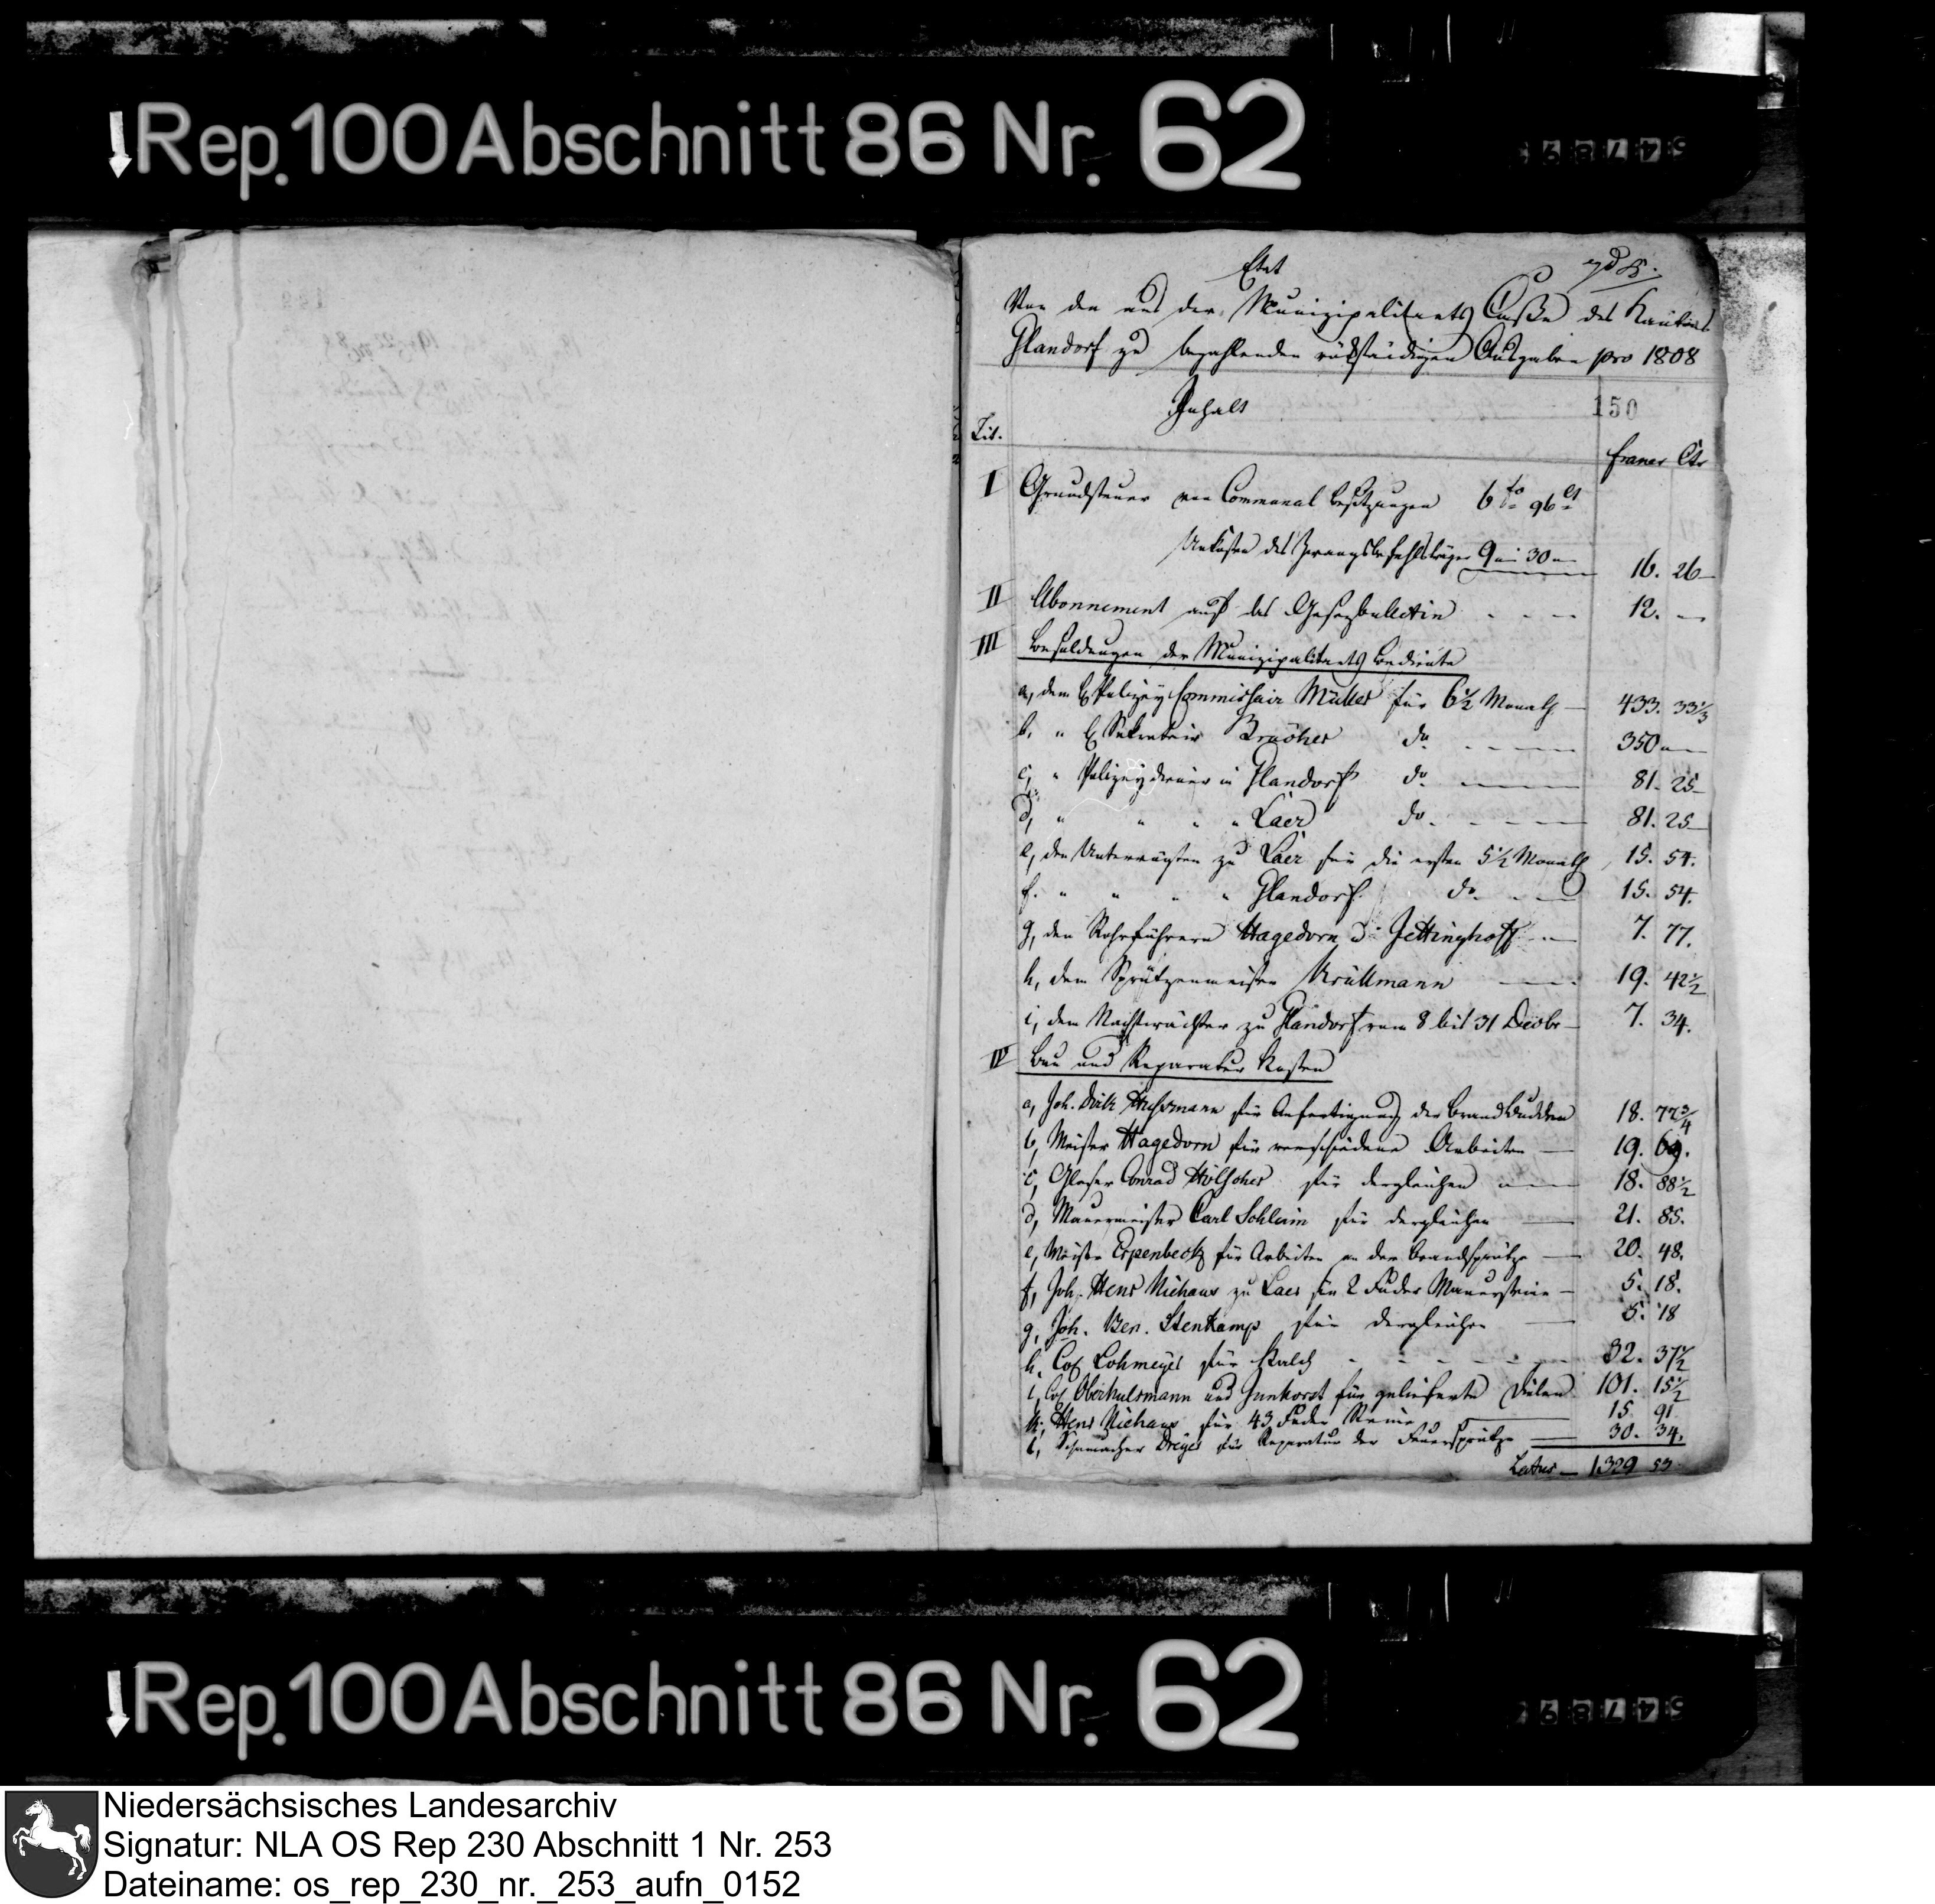 Rep. 100 Abschnitt 86 Nr. 62
Etat
Von den aus der Munizipalitaets Casse des Kantons
Glandorf zu bezahlenden rükständigen Ausgaben pro 1808
Inhalt
150
Tit.
Francs Cts
I Grundsteuer von Communal Besitzungen 6 fs 96 ct
Unkosten des Zwangsbefehlsträger 9 " 30 " 16. 26
II Abonnement auf das Gesezbulletin 12. —
III Besoldungen der Munizipalitaets Bediente
a, dem Ex Polizey Commissair Müller für 6½ Monath 433. 33⅓
b. " Ex Sekretair Bröcher do 350 "
c, " Polizeydiener in Glandorf do 81. 25
d, " " " " Laer do. 81. 25
e, den Untervögten zu Laer für die ersten 5½ Monath 15. 54.
f. " " " " Glandorf do 15. 54.
g, den Rohrführern Hagedorn & Jettinghoff 7. 77.
h, dem Sprützenmeister Krüllmann 19. 42½
i, dem Nachtwächter zu Glandorf vom 8 bis 31 Decbr 7. 34.
IV Bau und Reparatur Kosten
a, Joh. Dirk für Anfertigung der Brand 18. 77¾
b, Meister Hagedorn für verschiedene Arbeiten 19. 69.
c, Glaser Conrad Hölscher für dergleichen 18. 88½
d, Mauermeister Carl Schleim für dergleichen 21. 85.
e, Meister Erpenbeck für Arbeiten an der Brandsprütze 20. 48.
f, Joh. Henr Niehaus zu Laer für 2 Fuder Mauersteine 5. 18.
g, Joh. Ben. Stenkamp für dergleichen 5. 18
h. Col Lohmeyer für Kalch 32. 37½
i, Col Oberhulsmann und Junkorst für gelieferte Dielen 101. 15½
k, Henr Niehaus für 43 Fuder Steine 15 91
l, Dreyer für Reparatur der Feuersprütze 30. 34.
Latus — 1329 53
Rep. 100 Abschnitt 86 Nr. 62
Niedersächsisches Landesarchiv
Signatur: NLA OS Rep 230 Abschnitt 1 Nr. 253
Dateiname: os_rep_230_nr._253_aufn_0152